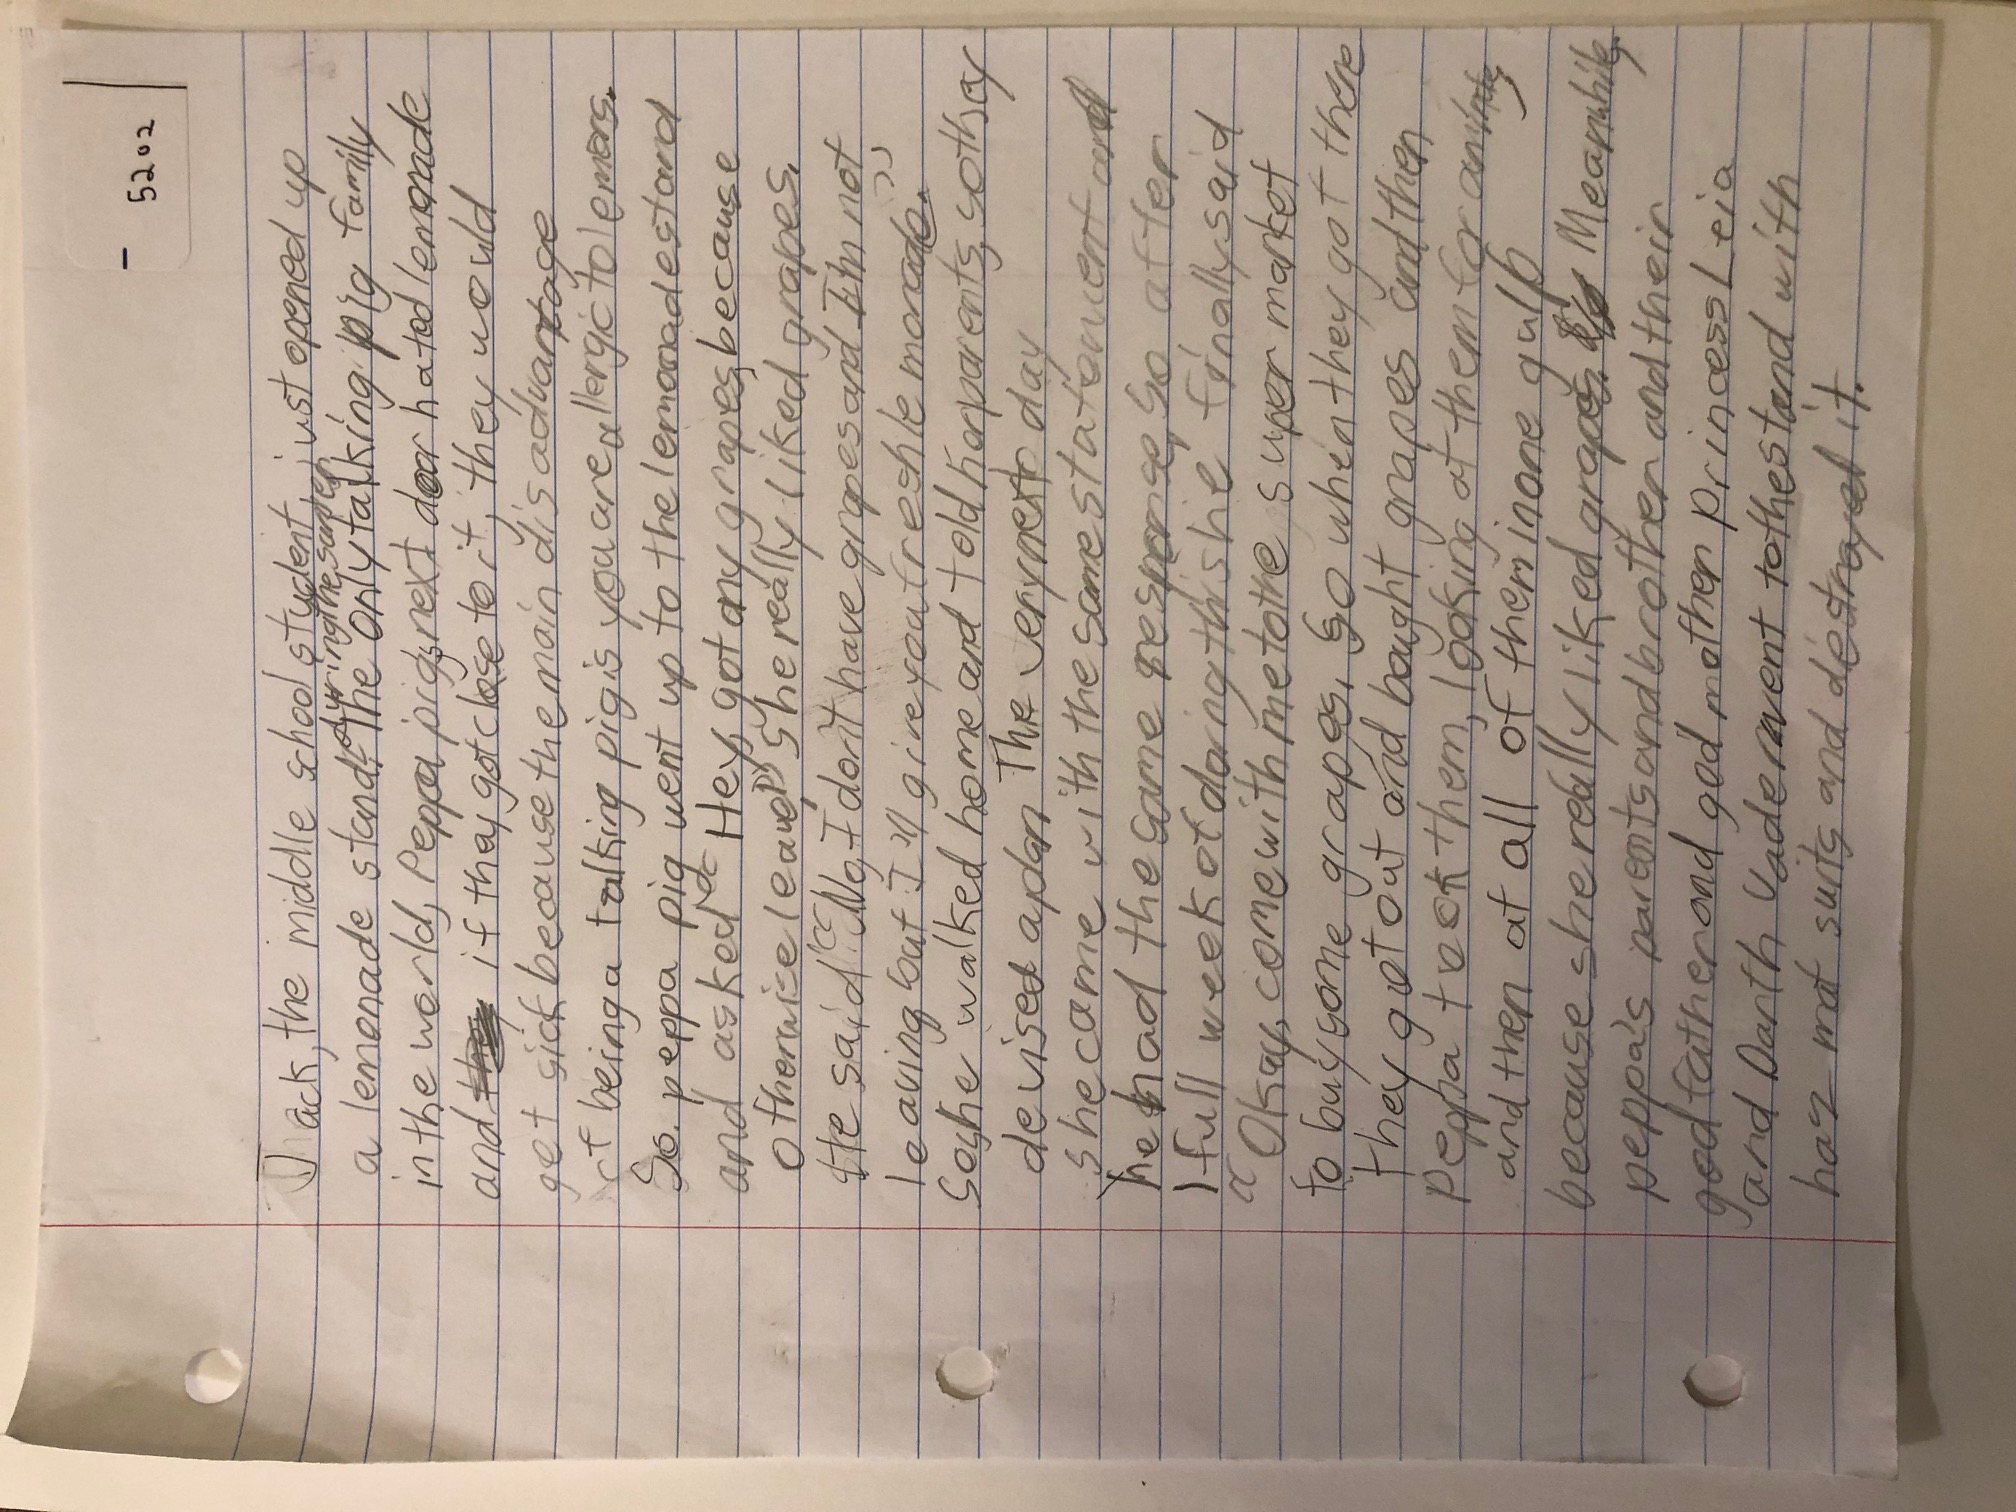 5202
Jack, the middle school student, just opened up
during the
a lemonade stand. The only talking pig family
in the world, Peppa pigs, next door hated lemonade
and if they got close to it, they would
get sick because the main disadvantage
of being a talking pig is you are allergic to lemons.
So. peppa pig went up to the lemonade stand
and asked "Hey, got any grapes, because
otherwise leave!" She really liked grapes.
He said "No, I don't have grapes and I'm not
leaving but I'll give you fresh lemonade."
So she walked home and told her parents, so they
devised a plan The very next day
she came with the same statement and
he had the same response, So, after
1 full week of doing this he finally said
"Okay, come with me to the super market
to buy some grapes. So when they got there
they got out and bought grapes and then
Peppa took them, looking at them for a minute,
and then at all of them in one gulp
because she really liked grapes. Meanwhile,
peppa's parents and brother and their
godfather and god mother Princess Leia
and Darth Vader went to the stand with
haz mat suits and destroyed it.